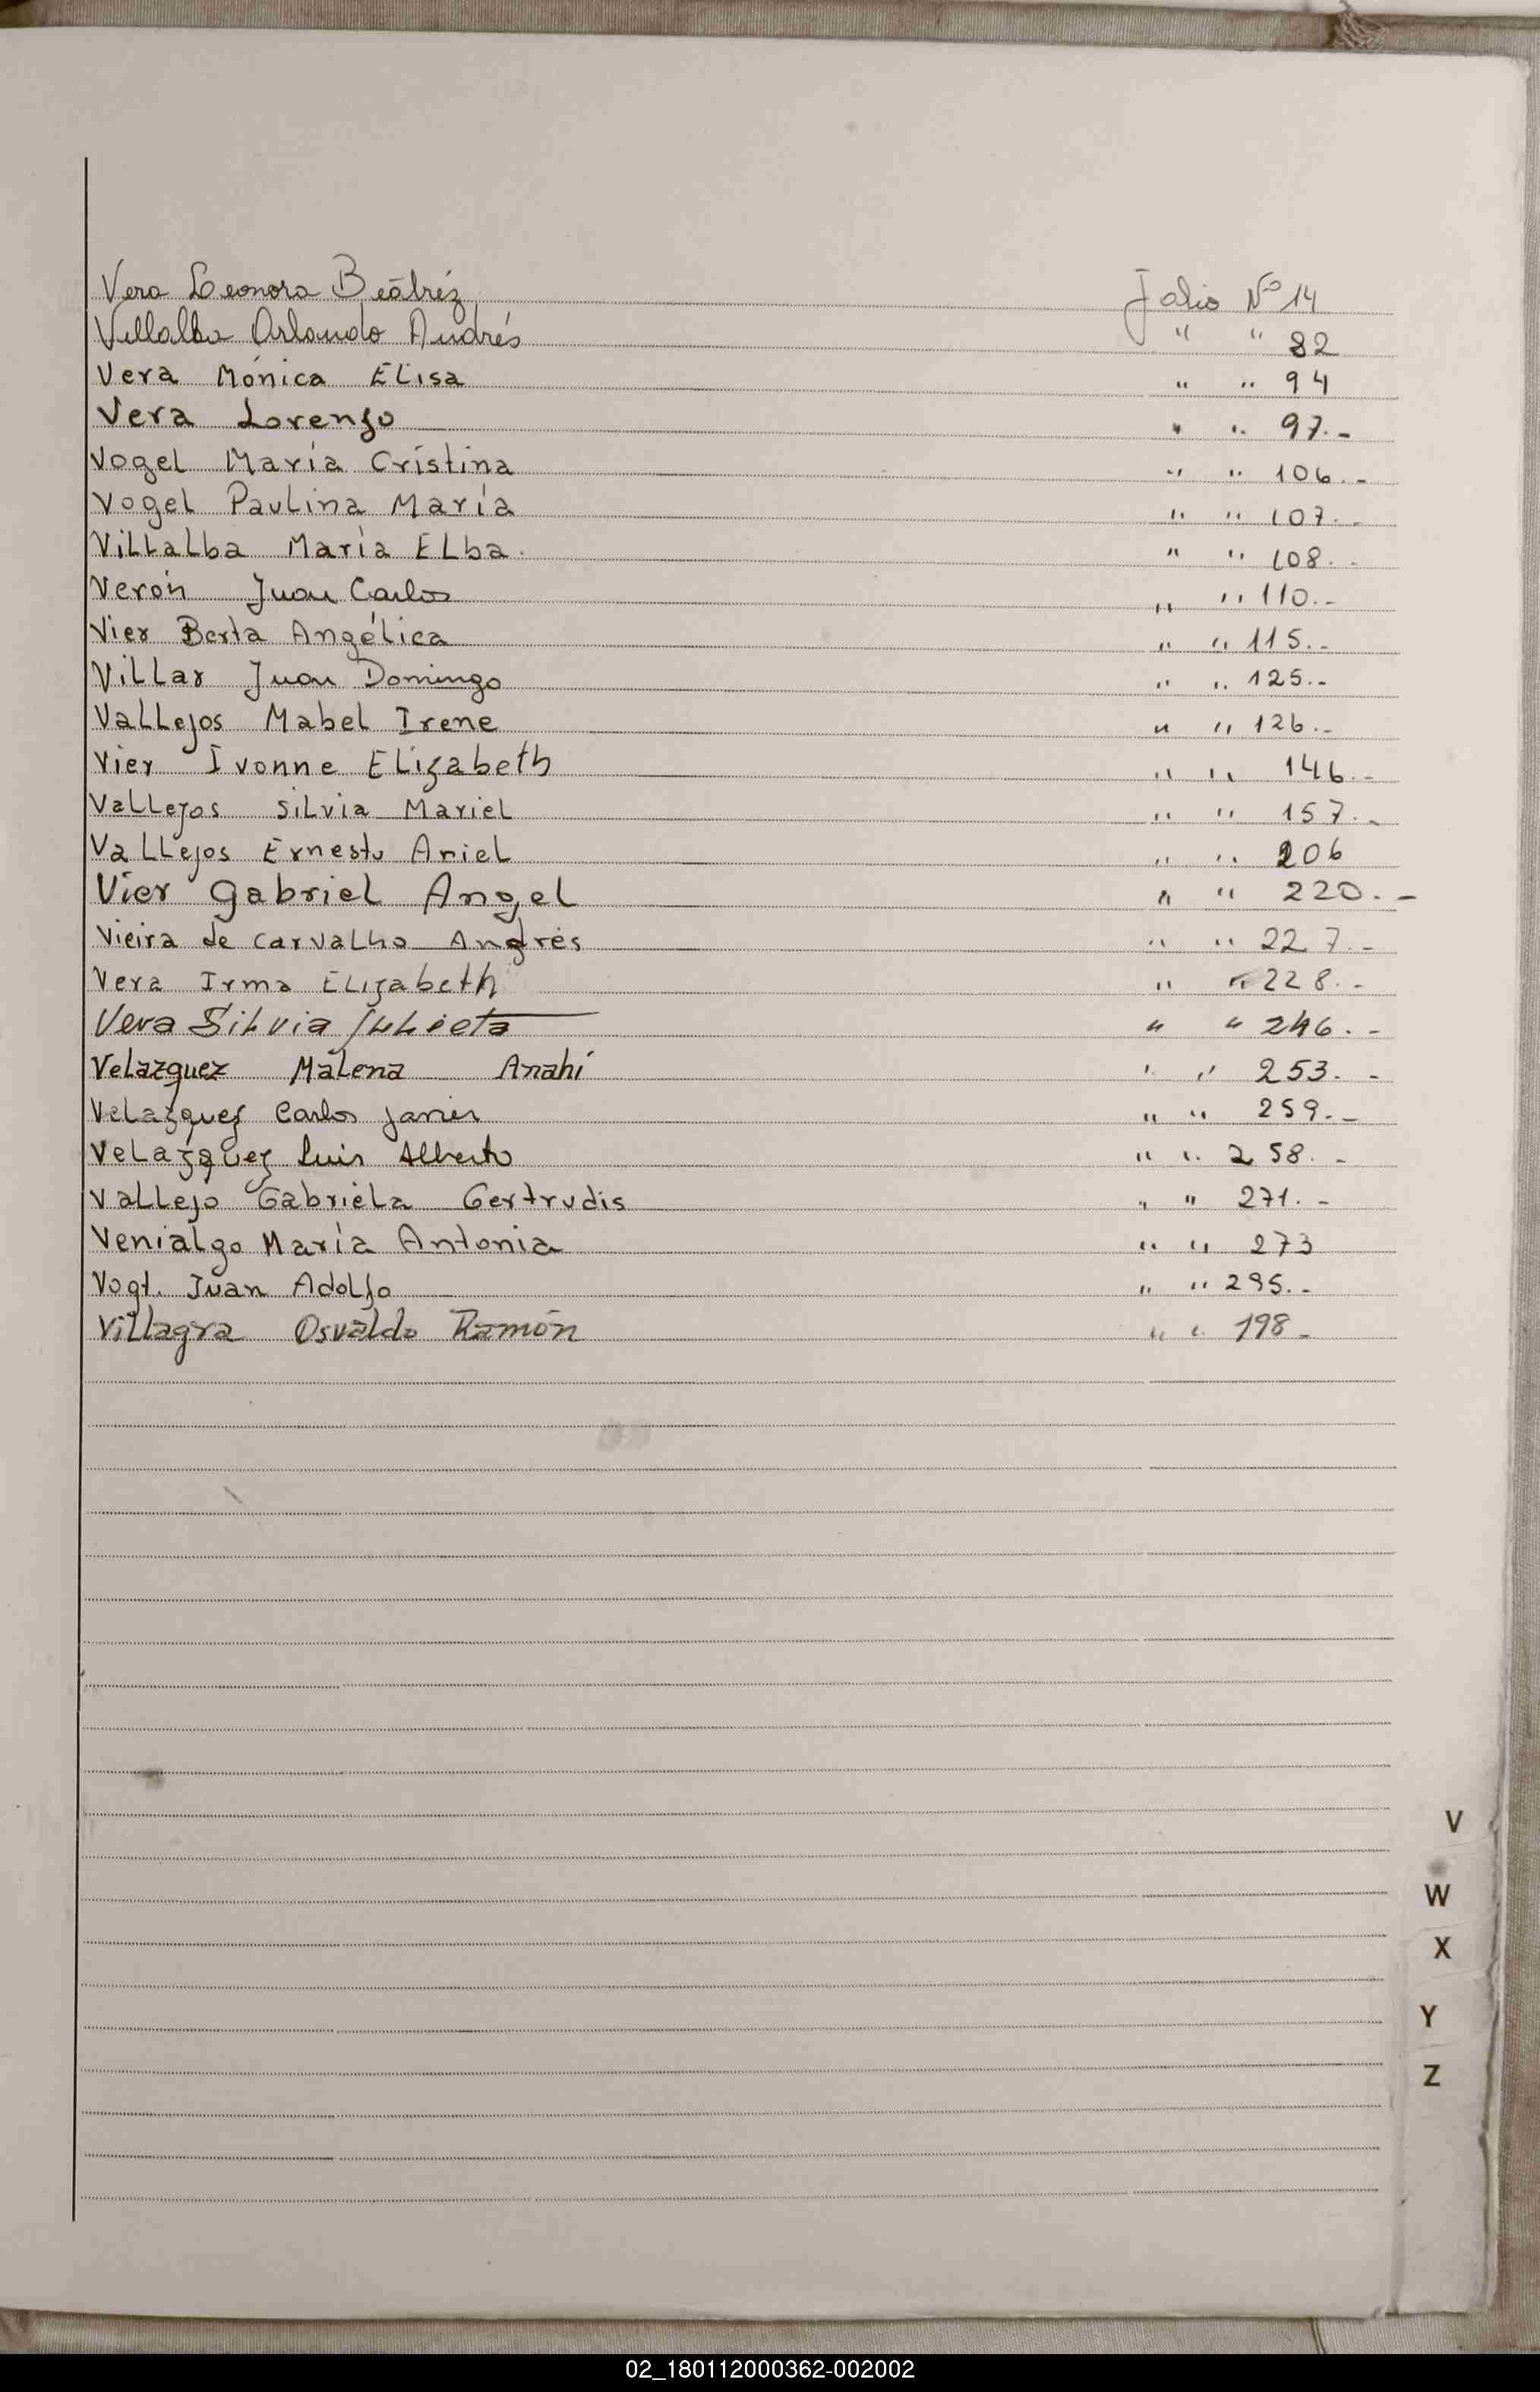 Vera Leonora Beátriz Folio Nº 14
Villalba Orlando Andrés " " 82
Vera Mónica Elisa " " 94
Vera Lorenzo " " 97.-
Vogel María Cristina " " 106.-
Vogel Paulina María " " 107.-
Villalba María Elba. " " 108.-
Verón Juan Carlos " " 110.-
Vier Berta Angélica " " 115.-
Villar Juan Domingo " " 125.-
Vallejos Mabel Irene " " 126.-
Vier Ivonne Elizabeth " " 146.-
Vallejos Silvia Mariel " " 157.-
Vallejos Ernesto Ariel " " 206
Vier Gabriel Angel " " 220.-
Vieira de Carvalho Andrés " " 227.-
Vera Irma Elizabeth " " 228.-
Vera Silvia Julieta " " 246.-
Velazquez Malena Anahí " " 253.-
Velazquez Carlos Javier " " 259.-
Velazquez Luis Alberto " " 258.-
Vallejo Gabriela Gertrudis " " 271.-
Venialgo María Antonia " " 273
Vogt. Juan Adolfo " " 295.-
Villagra Osvaldo Ramón " " 198-
V
W
X
Y
Z
02_180112000362-002002